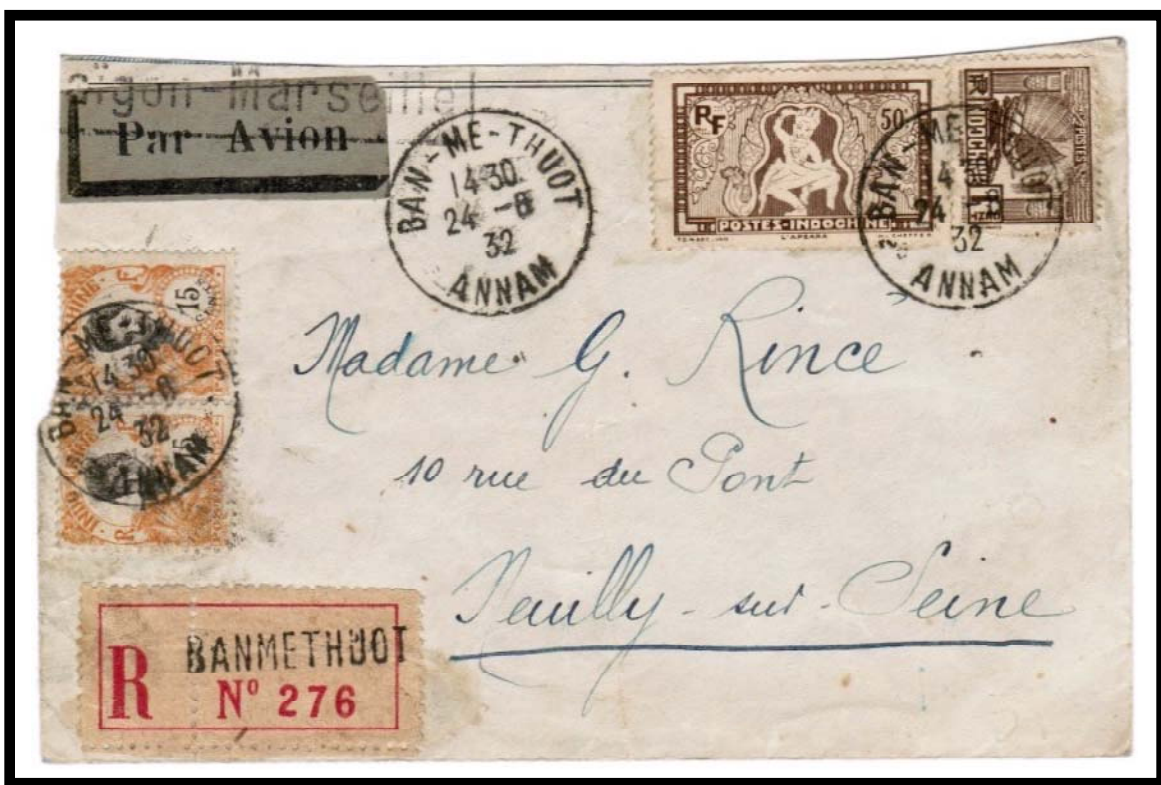 Saigon-Marseille
Par Avion
BAN-ME-THUOT
14 30
24 -8
32
ANNAM
RF
50
POSTES-INDOCHINE
L'APSARA
BAN-ME-THUOT
24 -8
32
ANNAM
RF
INDOCHINE
POSTES
15
BAN-ME-THUOT
14 30
24 -8
32
ANNAM
Madame G. Rincé
10 rue du Pont
Neuilly-sur-Seine
R
BANMETHUOT
N° 276